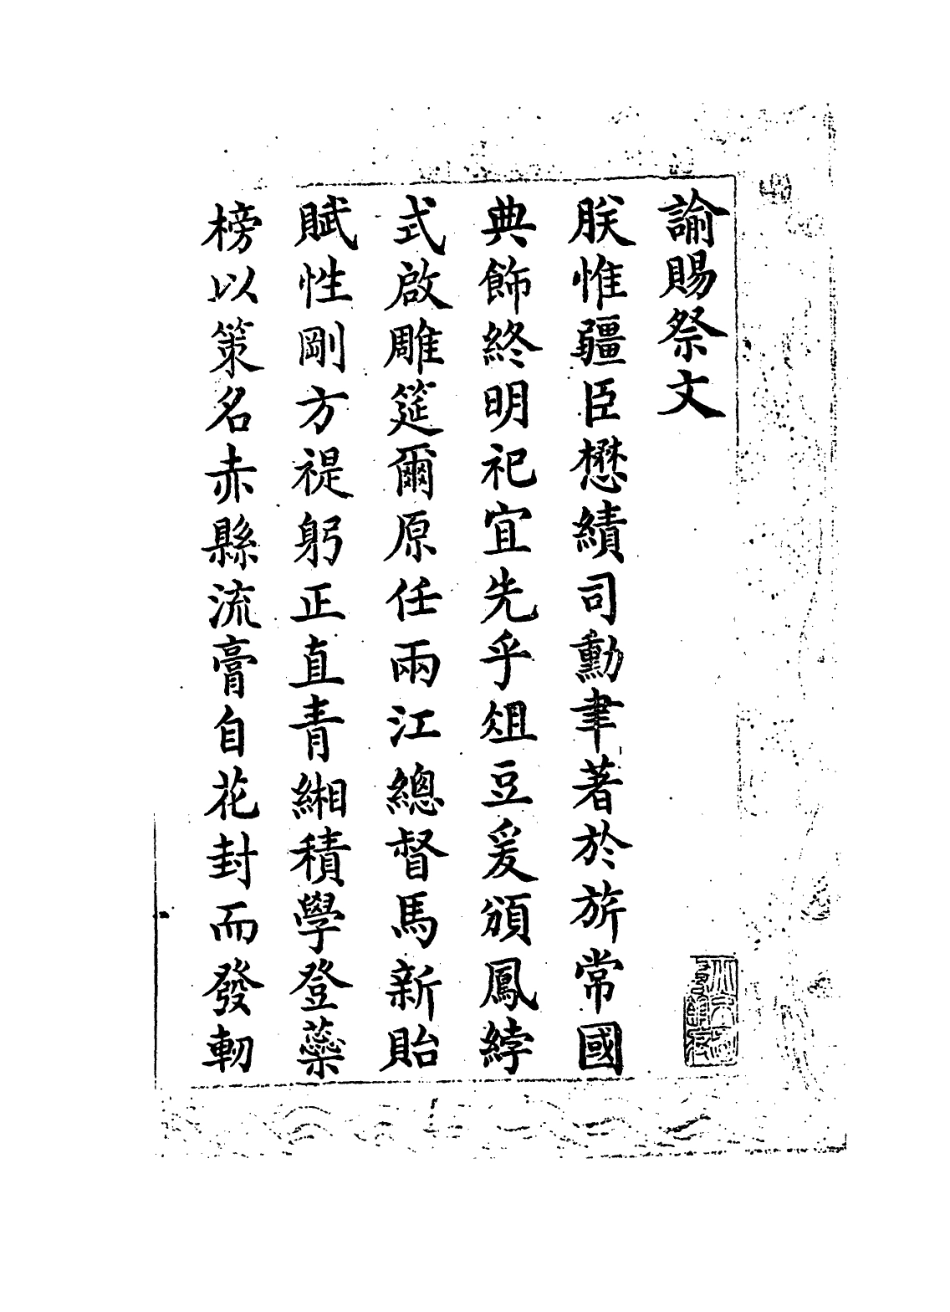 諭賜祭文
朕惟疆臣懋績司勳聿著於旂常國
典飾終明祀宜先乎俎豆爰頒鳳綍
式啟雕筵爾原任兩江總督馬新貽
賦性剛方禔躬正直青緗積學登蘂
榜以策名赤縣流膏自花封而發軔